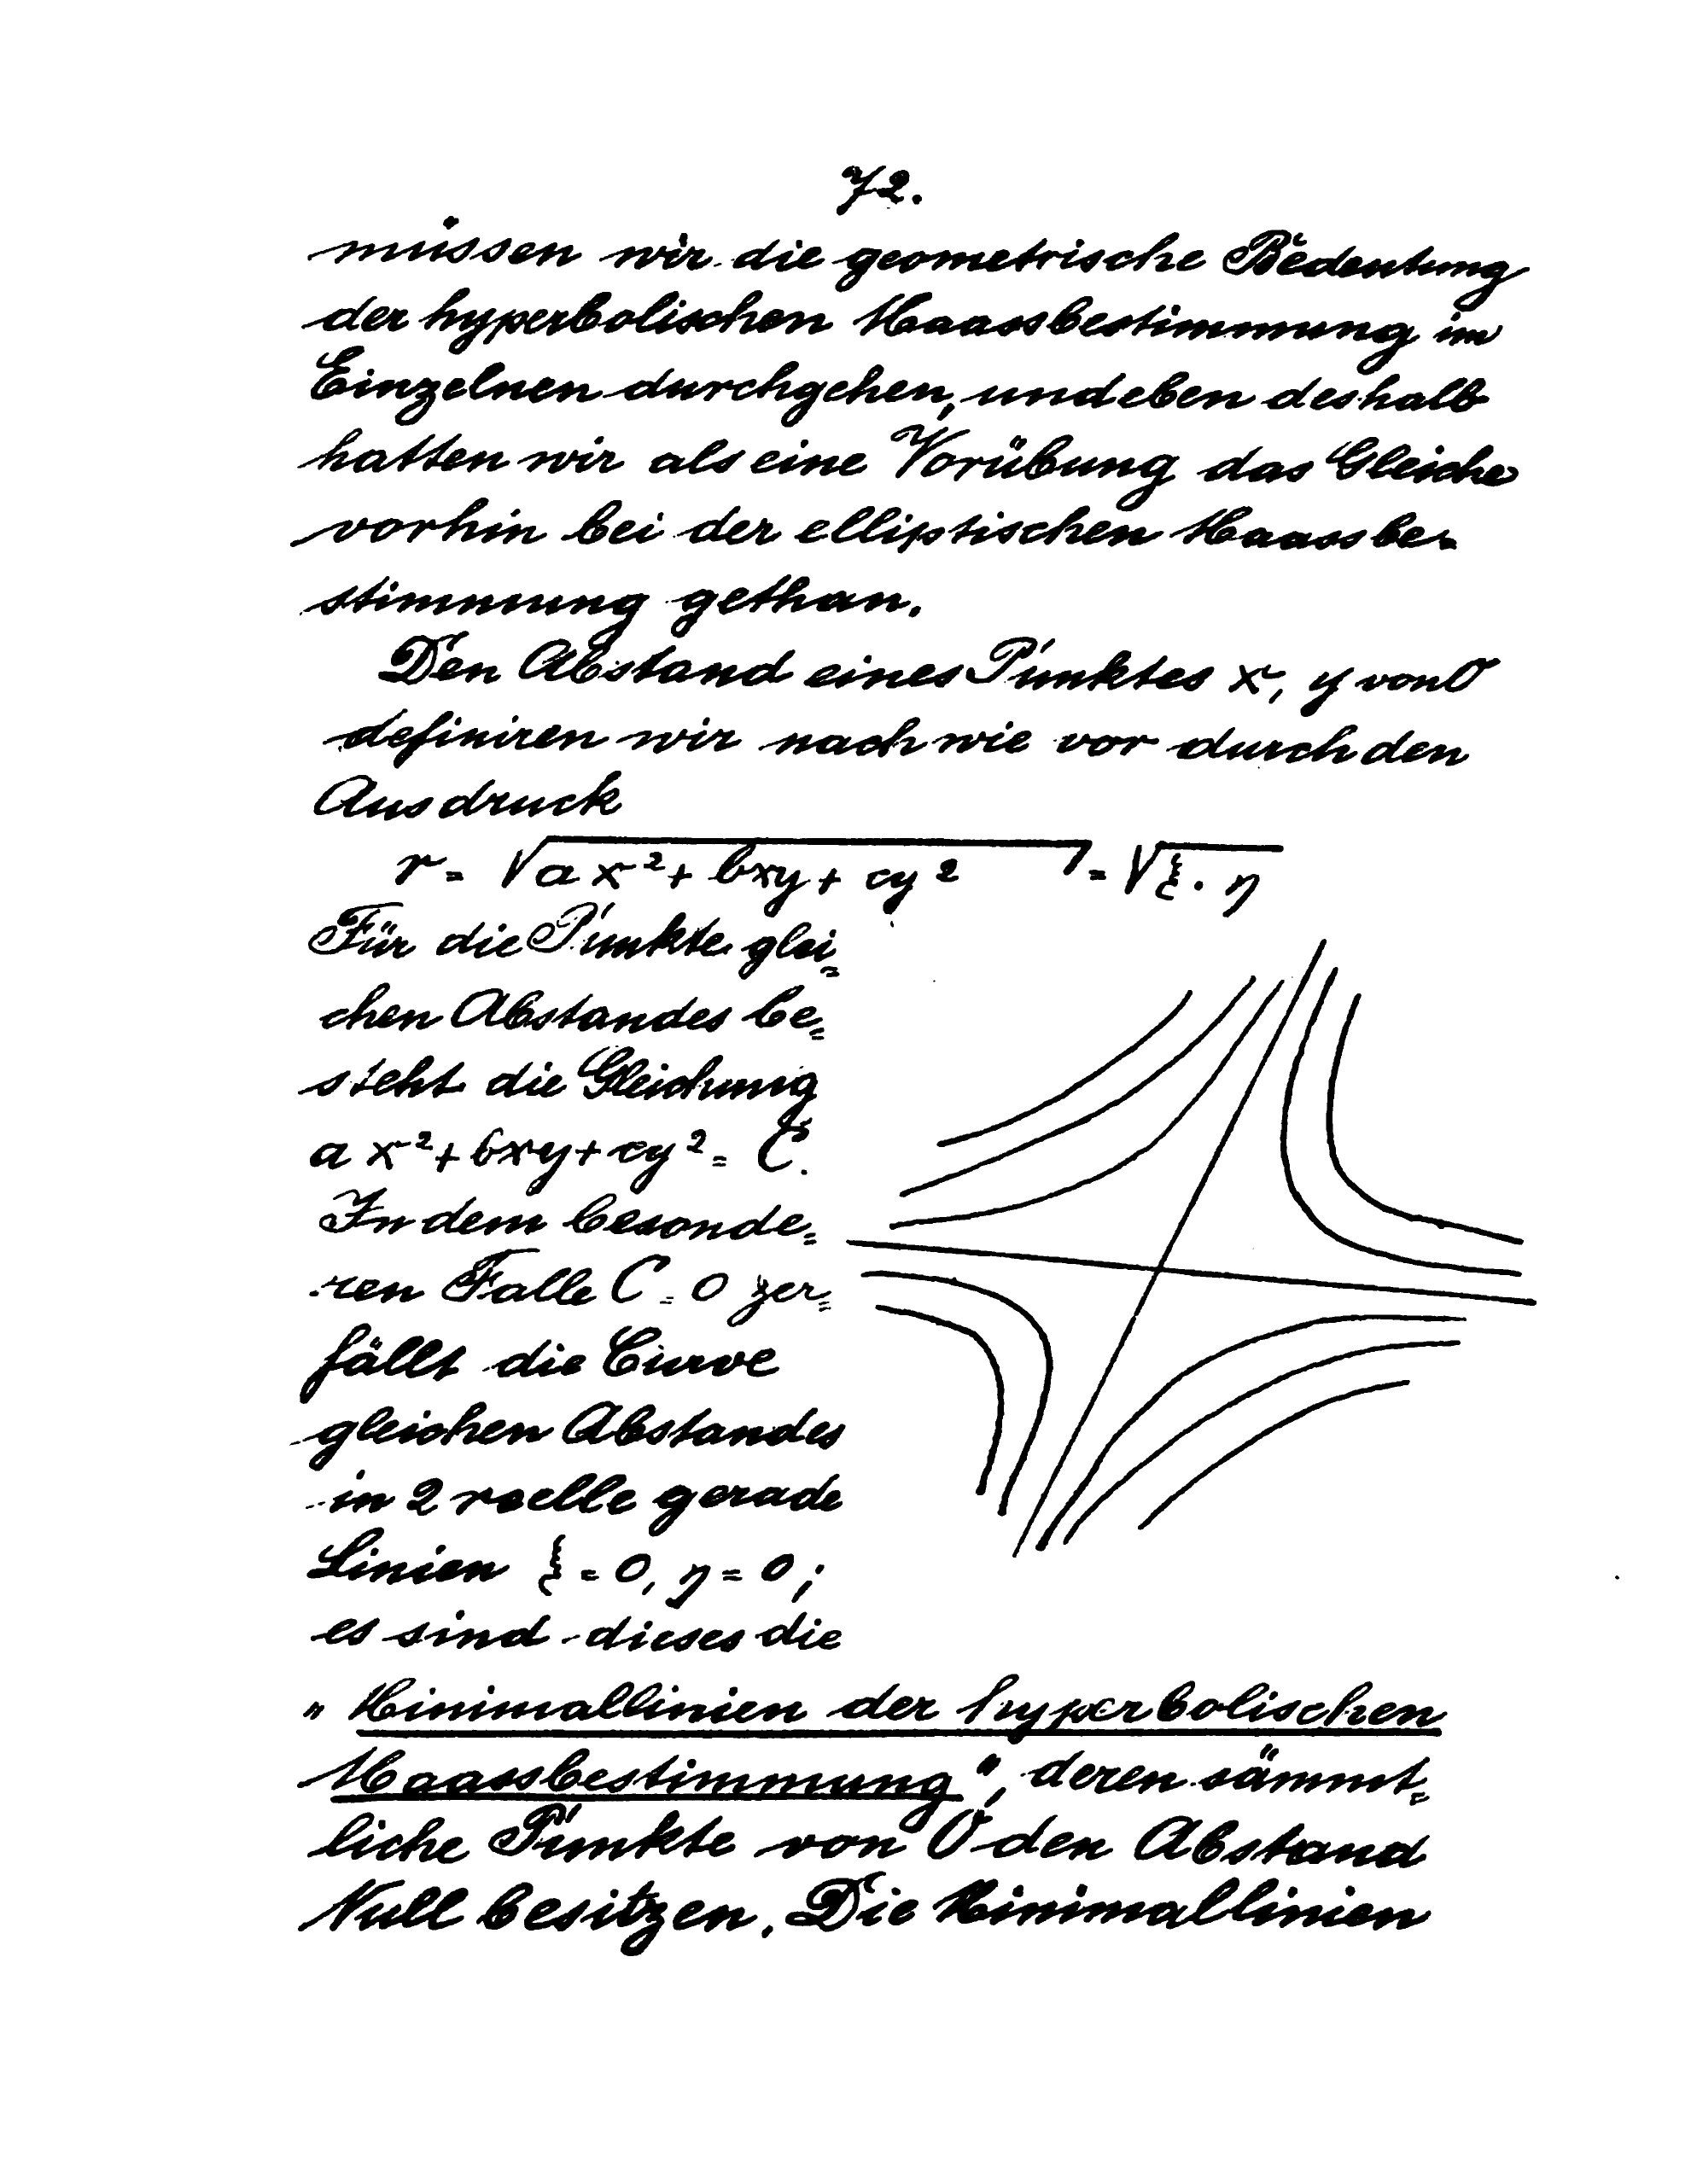 72.
müssen wir die geometrische Bedeutung
der hyperbolischen Maassbestimmung im
Einzelnen durchgehen, und eben deshalb
hatten wir als eine Vorübung das Gleiche
vorhin bei der elliptischen Maassbe-
stimmung gethan.
Den Abstand eines Punktes x, y von O
definiren wir nach wie vor durch den
Ausdruck
r = √(ax² + bxy + cy²) = √(ξ · η)
Für die Punkte glei=
chen Abstandes be=
steht die Gleichung
ax² + bxy + cy² = C.
In dem besonde=
ren Falle C = 0 zer=
fällt die Curve
gleichen Abstandes
in 2 reelle gerade
Linien ξ = 0, η = 0;
es sind dieses die
„Minimallinien der hyperbolischen
Maassbestimmung", deren sämmt=
liche Punkte von O den Abstand
Null besitzen. Die Minimallinien